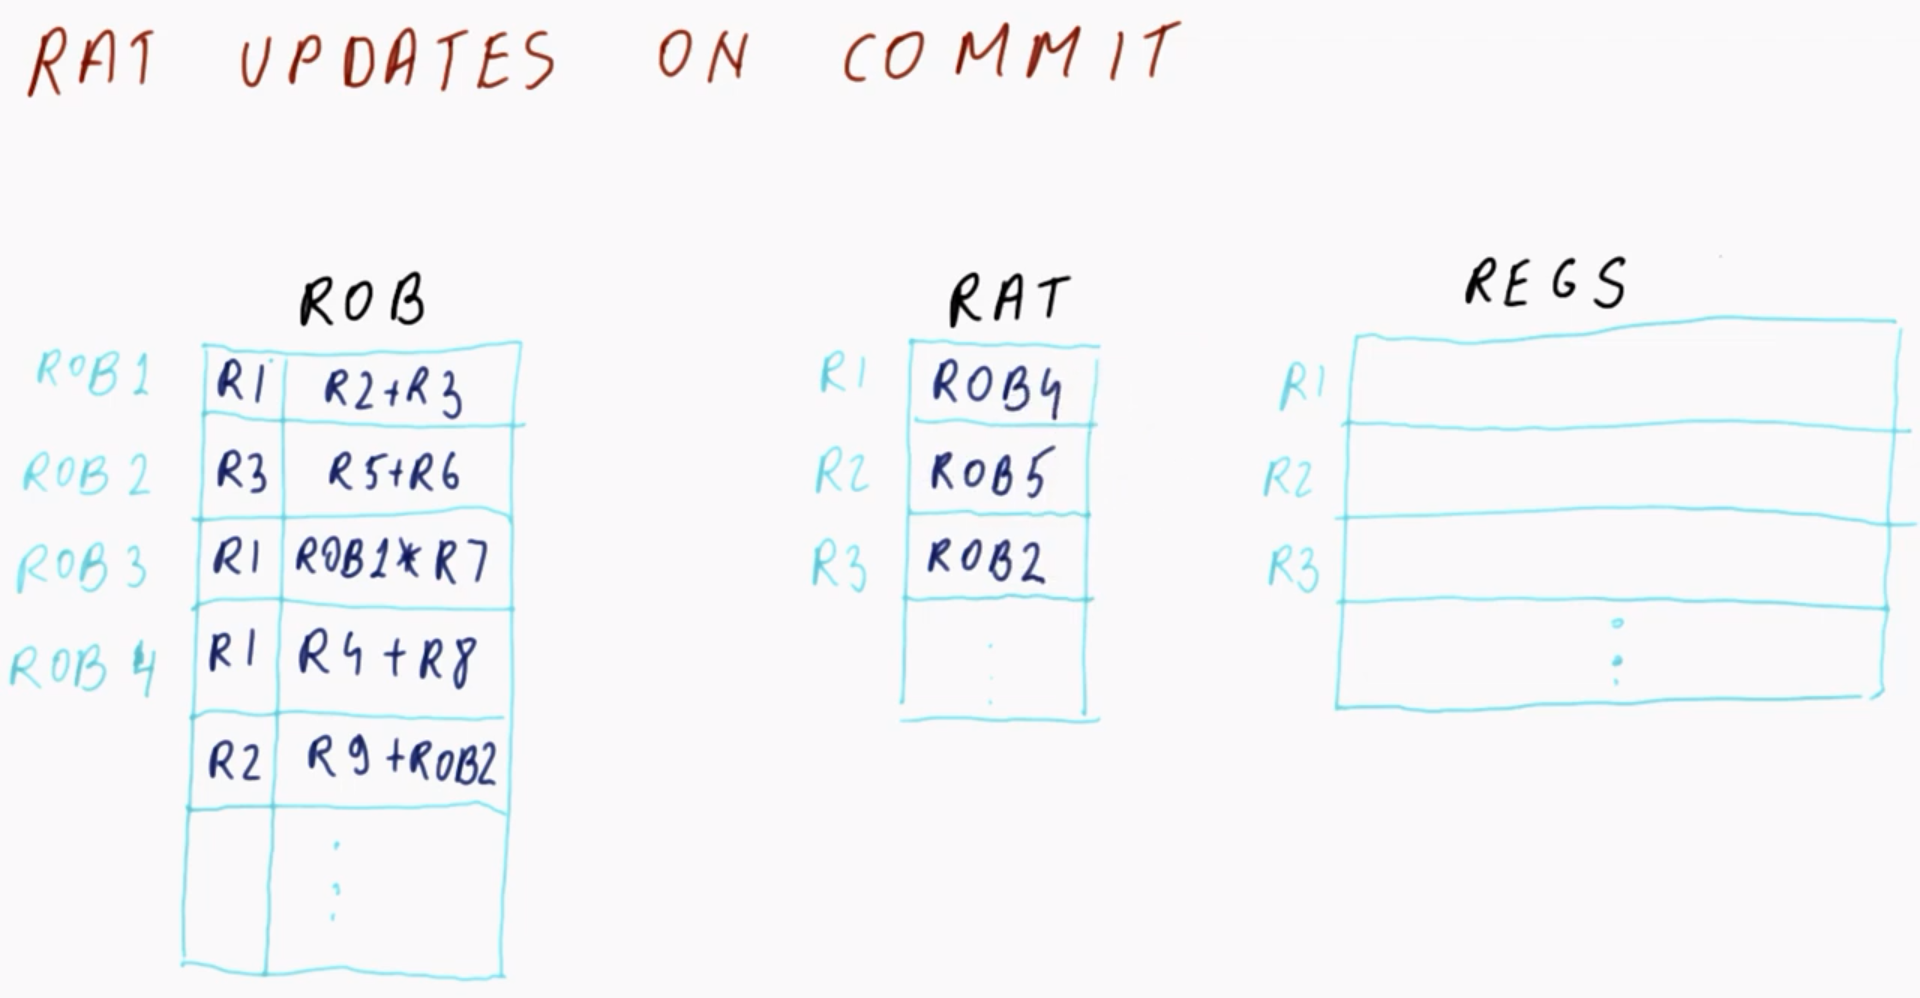 RAT UPDATES ON COMMIT
ROB
ROB1 R1 R2+R3
ROB2 R3 R5+R6
ROB3 R1 ROB1*R7
ROB4 R1 R4+R8
R2 R9+ROB2
RAT
R1 ROB4
R2 ROB5
R3 ROB2
REGS
R1
R2
R3